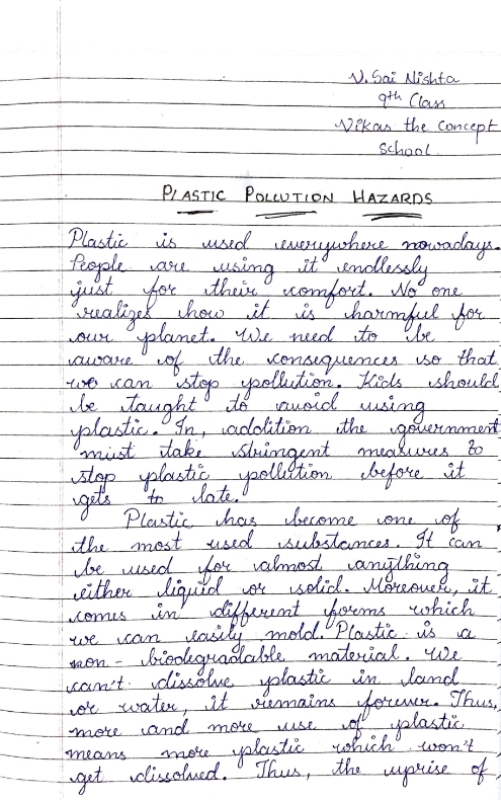 V. Sai Nishta
9th Class
Vikas the concept
school.
PLASTIC POLLUTION HAZARDS
Plastic is used everywhere nowadays.
People are using it endlessly
just for their comfort. No one
realizes how it is harmful for
our planet. We need to be
aware of the consequences so that
we can stop pollution. Kids should
be taught to avoid using
plastic. In, addition the government
must take stringent measures to
stop plastic pollution before it
gets to late.
Plastic has become one of
the most used substances. It can
be used for almost anything
either liquid or solid. Moreover, it
comes in different forms which
we can easily mold. Plastic is a
non-biodegradable material. We
can't dissolve plastic in land
or water, it remains forever. Thus,
more and more use of plastic
means more plastic which won't
get dissolved. Thus, the uprise of